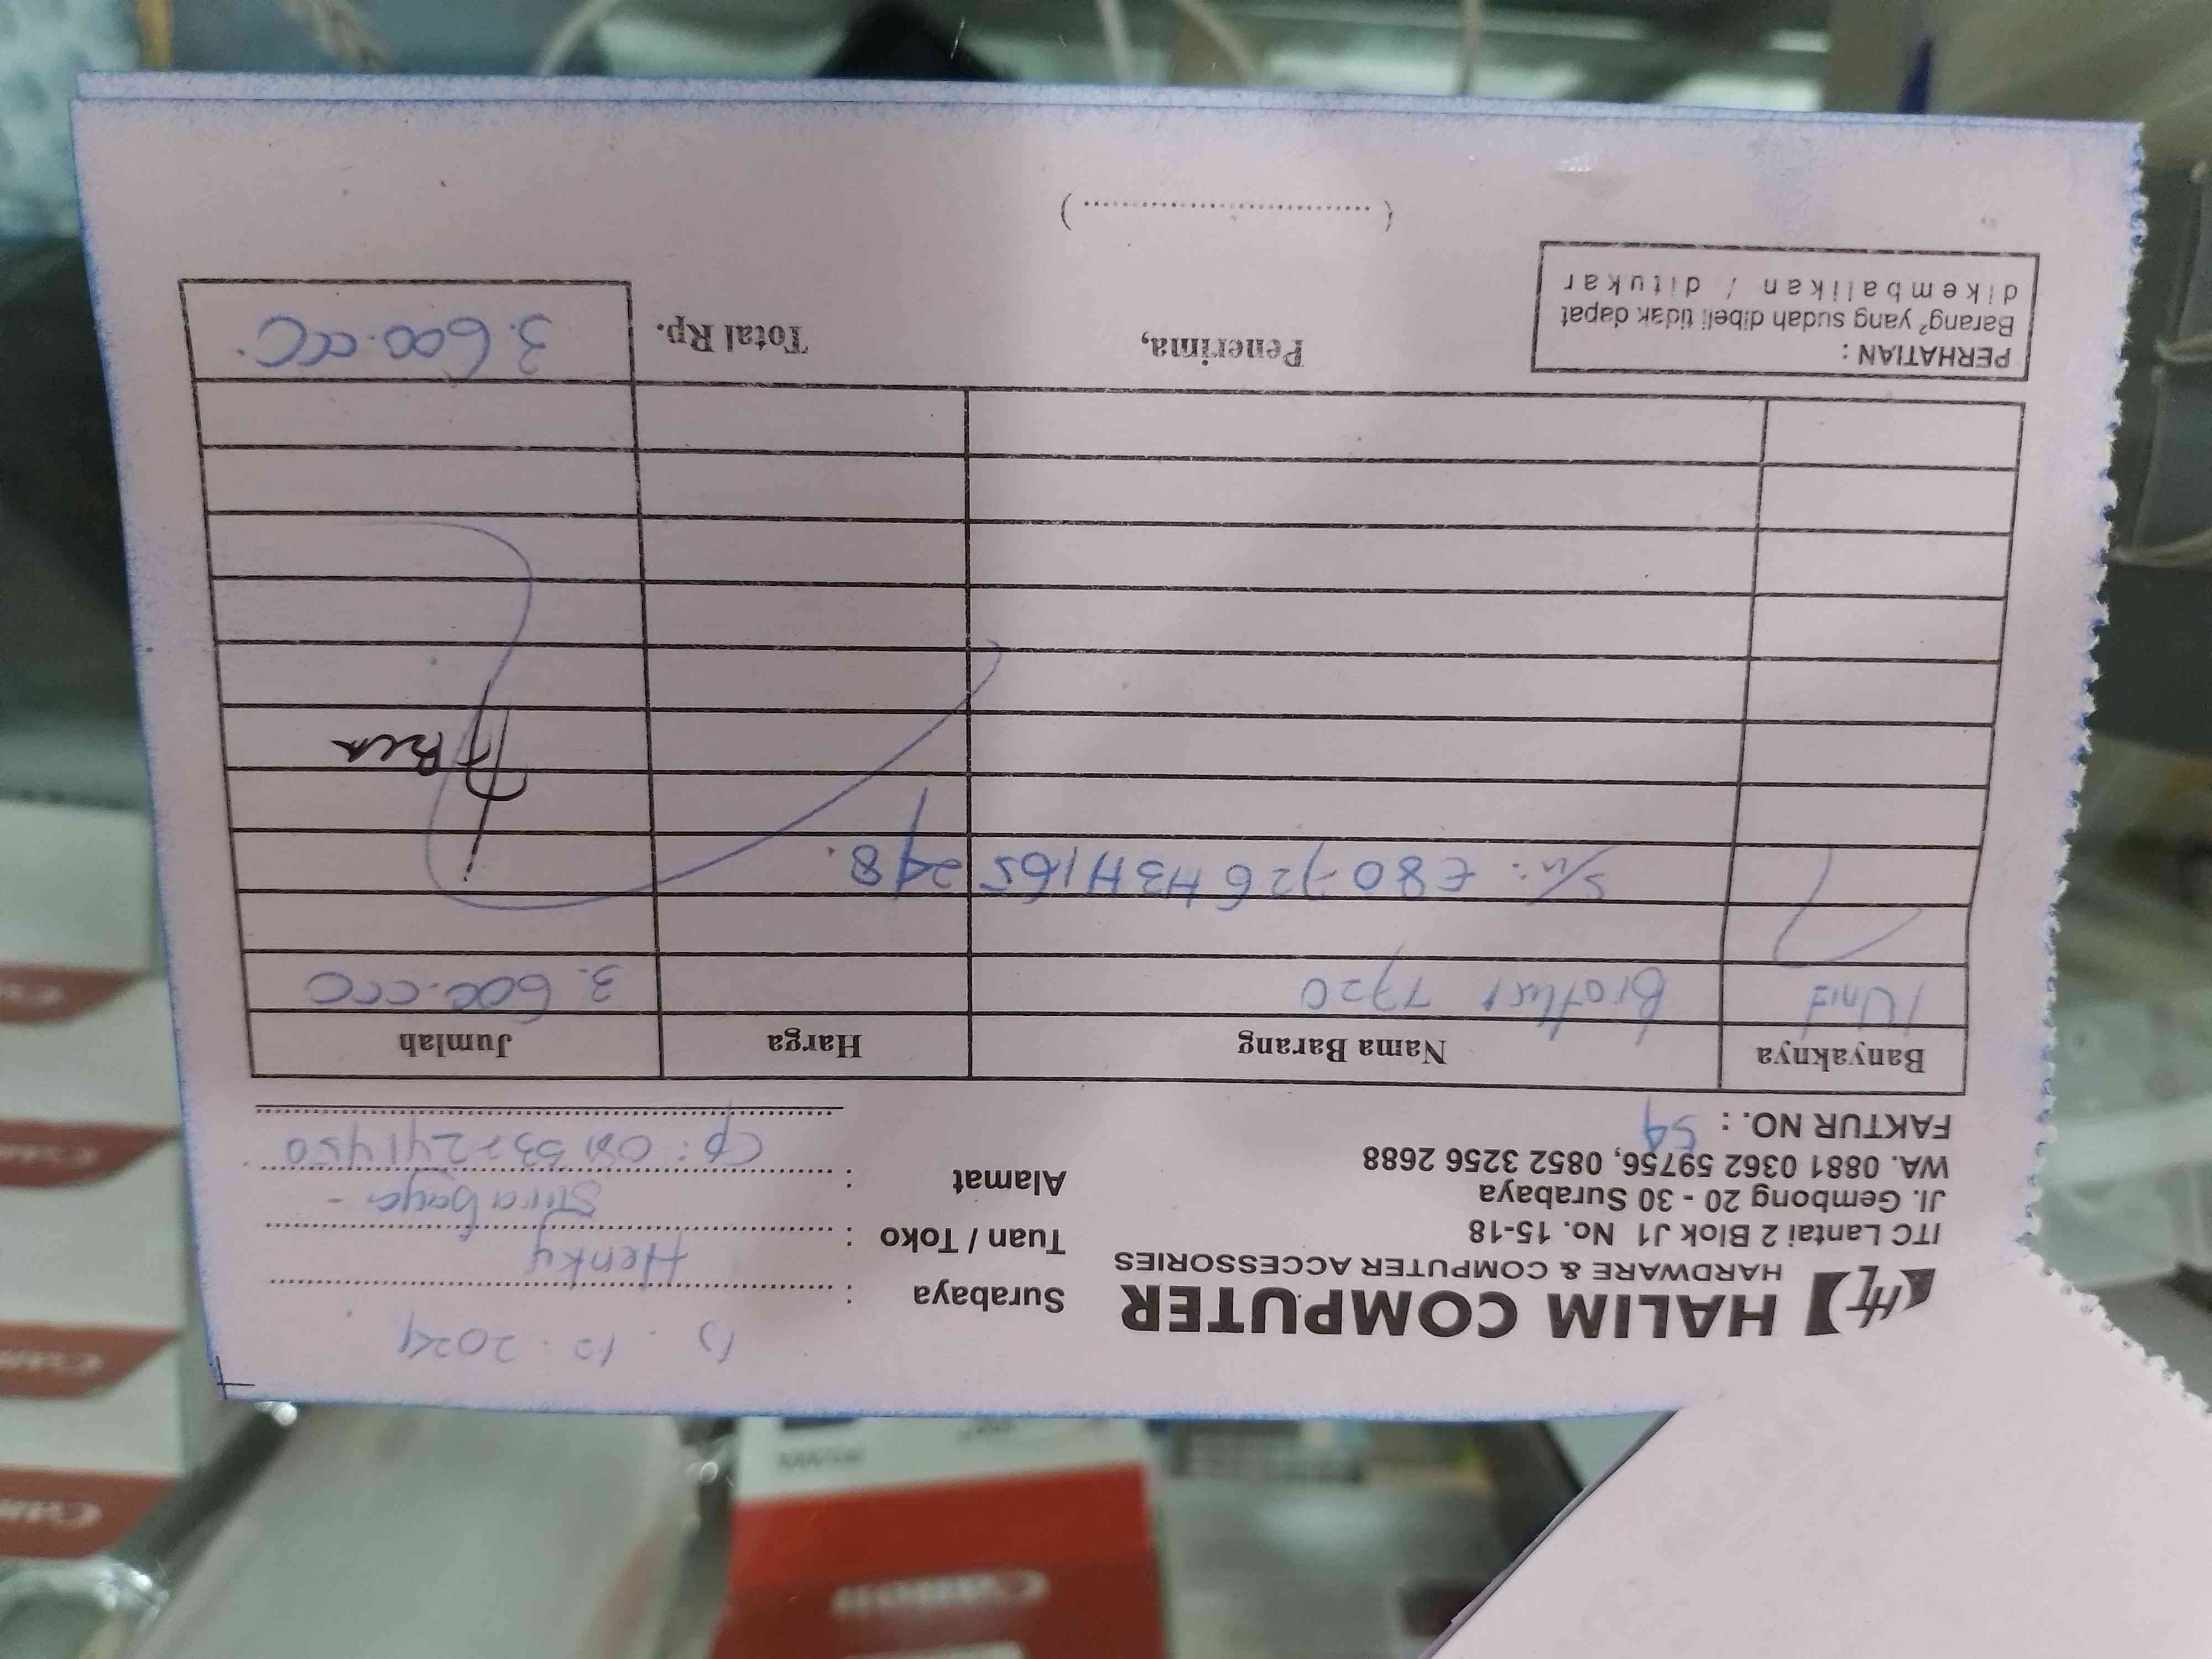 13 . 12 . 2024
HALIM COMPUTER
HARDWARE & COMPUTER ACCESSORIES
ITC Lantai 2 Blok J1 No. 15-18
Jl. Gembong 20 - 30 Surabaya
WA. 0881 0362 59756, 0852 3256 2688
FAKTUR NO. : 59
Surabaya :
Tuan / Toko : Henky
Alamat : Surabaya -
Cp:
Banyaknya Nama Barang Harga Jumlah
1 Unit Brother T720 3.600.000
S/N: E80726H3H165248.
Bca
PERHATIAN :
Barang² yang sudah dibeli tidak dapat
dikembalikan / ditukar
Penerima,
Total Rp. 3.600.000.
Canon
Canon
Canon
Canon
Canon